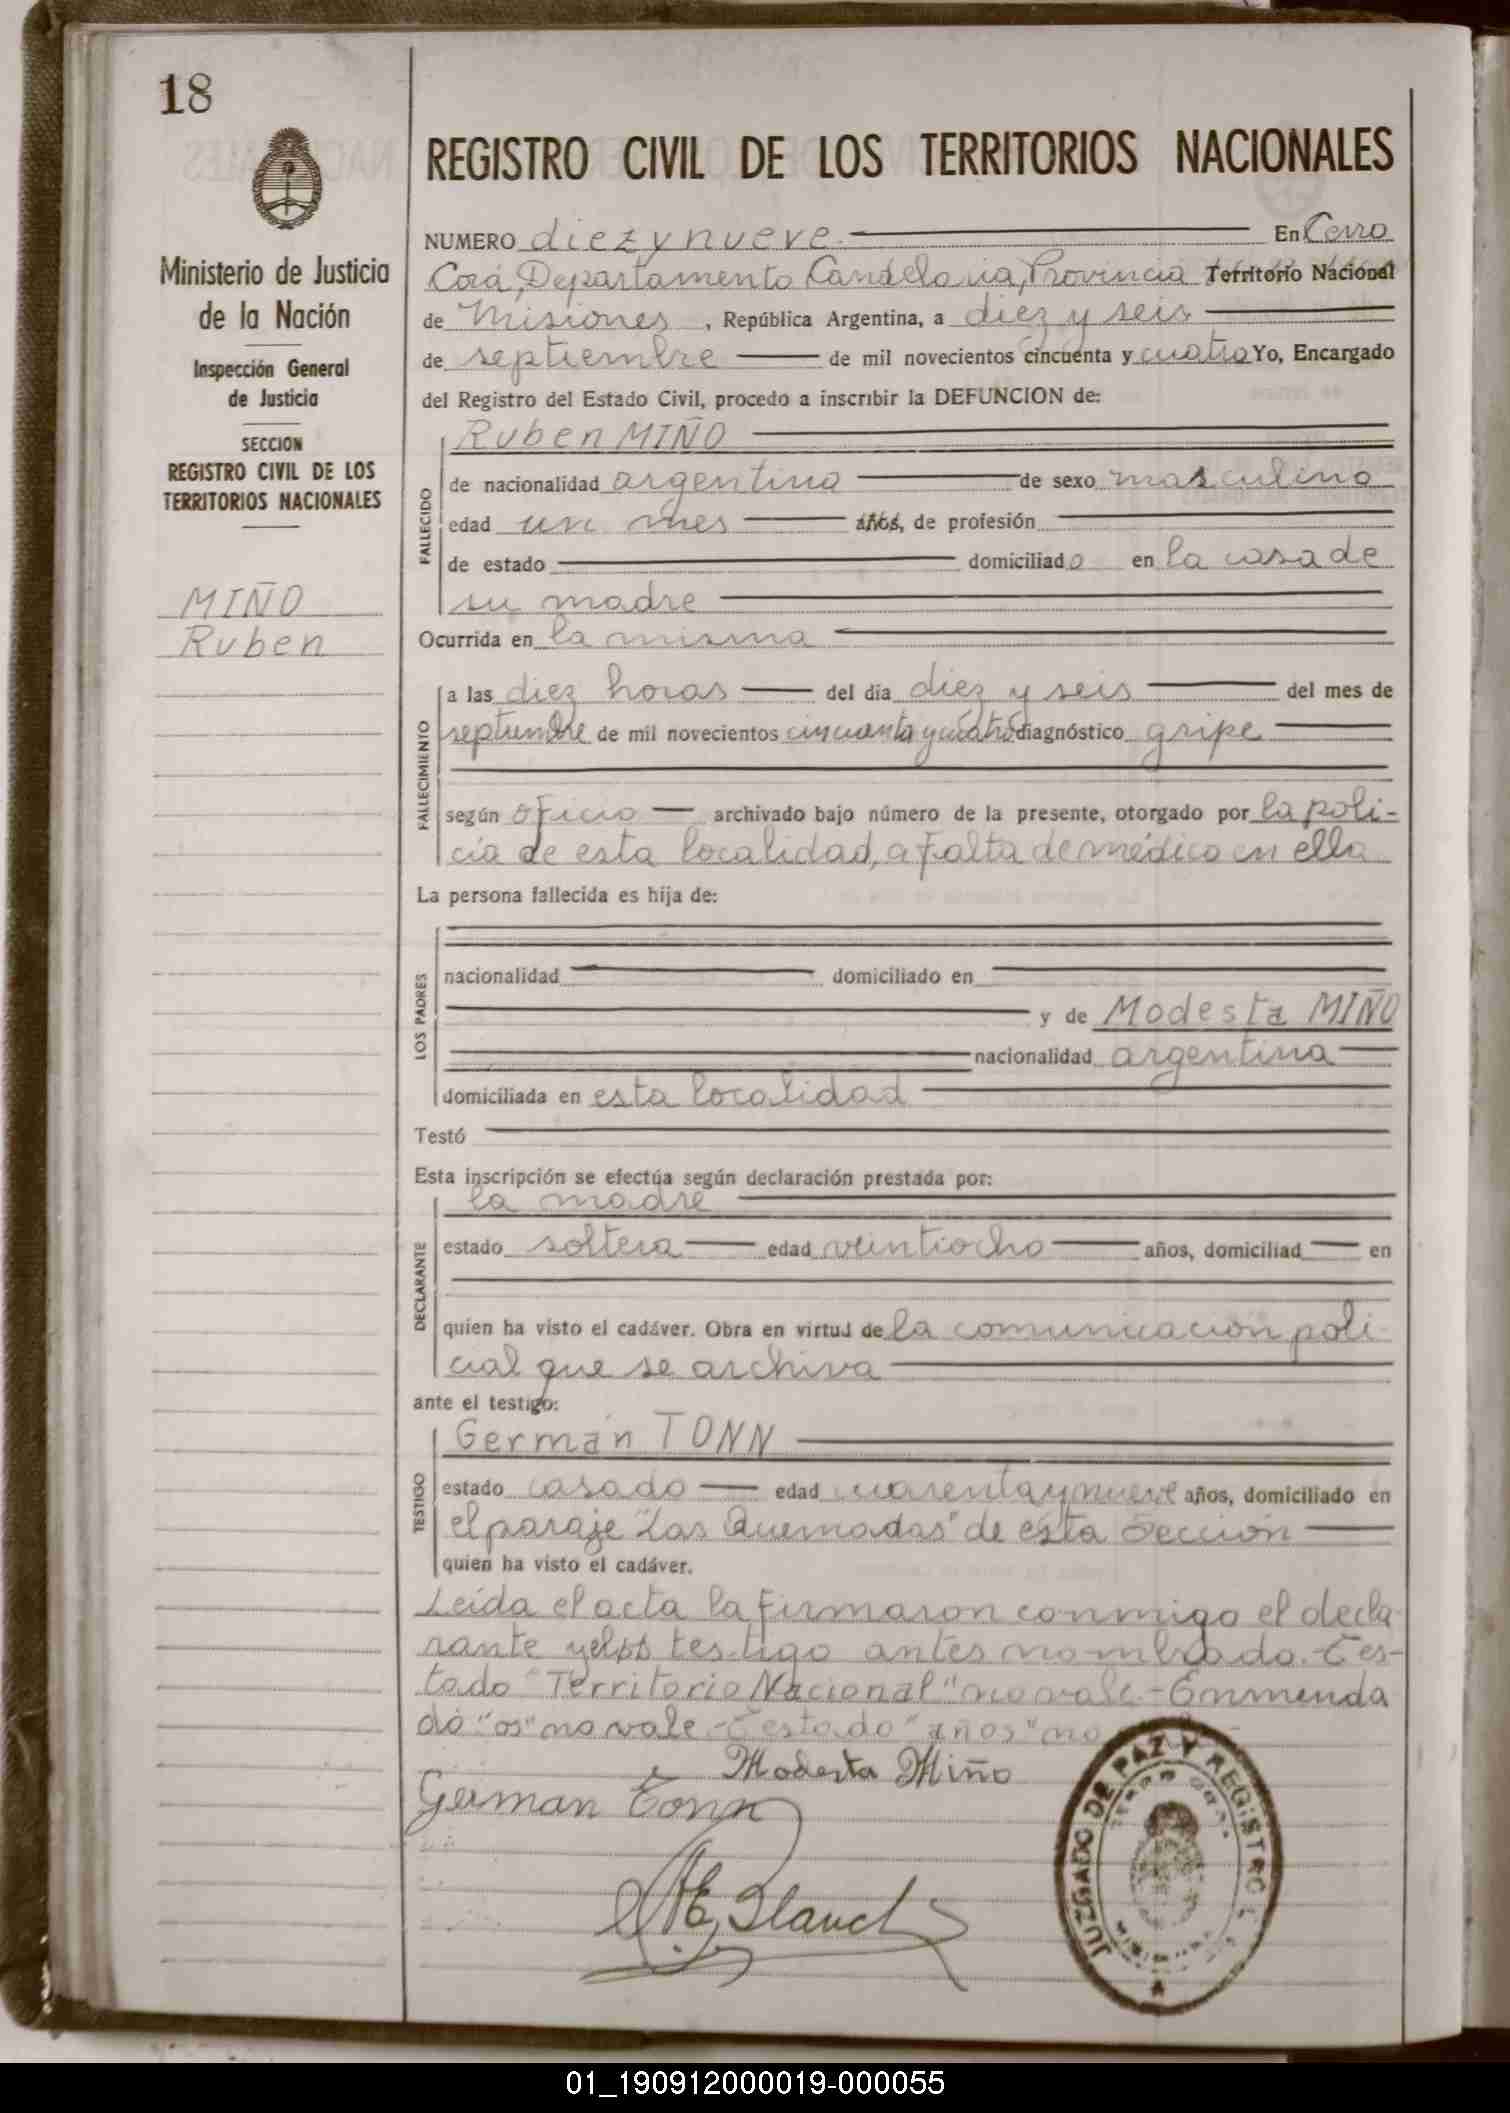 18
REGISTRO CIVIL DE LOS TERRITORIOS NACIONALES
Ministerio de Justicia
de la Nación
Inspección General
de Justicia
SECCION
REGISTRO CIVIL DE LOS
TERRITORIOS NACIONALES
MIÑO
Ruben
NUMERO diez y nueve.- En Cerro
Corá, Departamento Candelaria, Provincia Territorio Nacional
de Misiones, República Argentina, a diez y seis
de septiembre de mil novecientos cincuenta y cuatro Yo, Encargado
del Registro del Estado Civil, procedo a inscribir la DEFUNCION de:
Ruben MIÑO
FALLECIDO
de nacionalidad argentina de sexo masculino
edad un mes años, de profesión
de estado domiciliado en la casa de
su madre
Ocurrida en la misma
FALLECIMIENTO
a las diez horas del dia diez y seis del mes de
septiembre de mil novecientos cincuenta y cuatro diagnóstico gripe
según oficio archivado bajo número de la presente, otorgado por la poli-
cía de esta localidad, a falta de médico en ella
La persona fallecida es hija de:
LOS PADRES
nacionalidad domiciliado en
y de Modesta MIÑO
nacionalidad argentina
domiciliada en esta localidad
Testó
Esta inscripción se efectúa según declaración prestada por:
la madre
DECLARANTE
estado soltera edad veintiocho años, domiciliad en
quien ha visto el cadáver. Obra en virtud de la comunicación poli-
cial que se archiva
ante el testigo:
Germán TONN
TESTIGO
estado casado edad cuarenta y nueve años, domiciliado en
el paraje "Las Quemadas" de esta Sección
quien ha visto el cadáver.
Leída el acta la firmaron conmigo el decla-
rante y el testigo antes nombrado. Tes-
tado "Territorio Nacional" no vale.- Enmenda
do "os" no vale.- Testado "años" no
Modesta Miño
German Tonn
JUZGADO DE PAZ Y REGISTRO
01_190912000019-000055